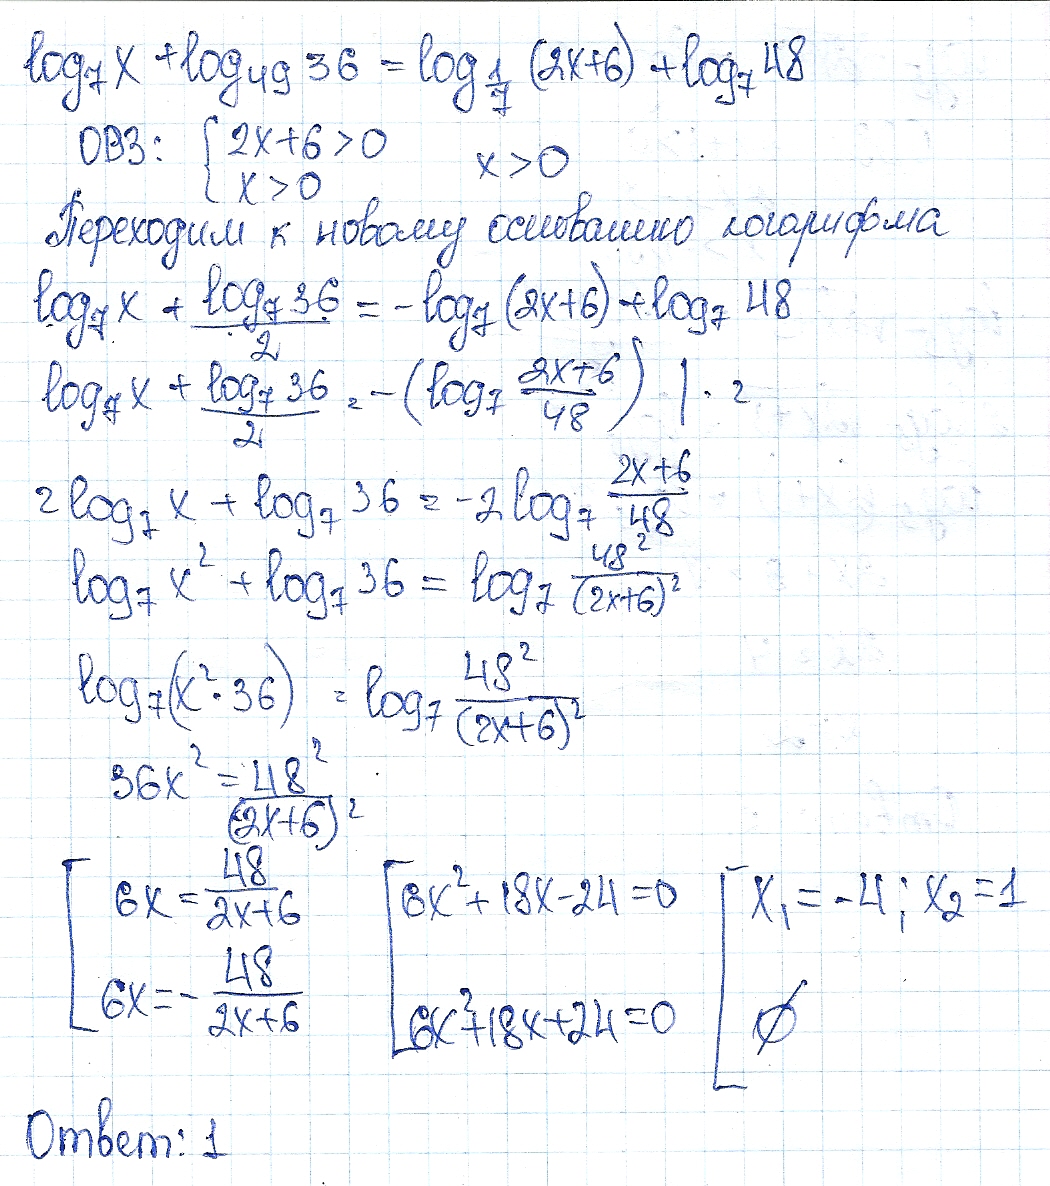 log₇ x + log₄₉ 36 = log_{1/7} (2x+6) + log₇ 48
ОВЗ: { 2x+6>0
x>0
x>0
Переходим к новому основанию логарифма
log₇ x + log₇ 36 / 2 = - log₇ (2x+6) + log₇ 48
log₇ x + log₇ 36 / 2 = - ( log₇ (2x+6)/48 ) | · 2
2 log₇ x + log₇ 36 = -2 log₇ (2x+6)/48
log₇ x² + log₇ 36 = log₇ 48²/(2x+6)²
log₇ (x² · 36) = log₇ 48²/(2x+6)²
36x² = 48²/(2x+6)²
[ 6x = 48/(2x+6) [ 6x² + 18x - 24 = 0 [ x₁ = -4; x₂ = 1
6x = - 48/(2x+6) 6x² + 18x + 24 = 0 ∅
Ответ: 1